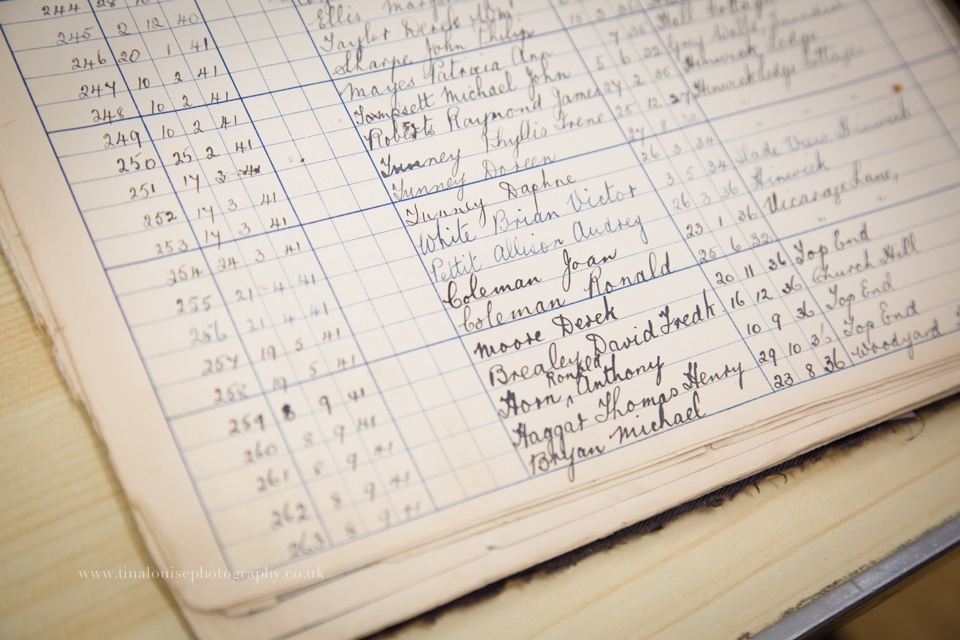 244
245 2 12 40
246 20 1 41 Ellis
247 10 2 41 Taylor Derek Wm.
248 10 2 41 Sharpe John Philip
249 10 2 41 Mayes Patricia Ann
250 25 2 41 Tompsett Michael John 5 6 Hinwick Lodge
251 17 3 Roberts Raymond James 27 2 Hinwick Lodge Cottages
252 17 3 41 Tunney Phyllis Irene 25 12 27 " "
253 17 3 41 Tunney Doreen 27 8
254 24 3 41 Tunney Daphne 26 3 34
255 21 4 41 White Brian Victor 3 5 34 View, Hinwick
256 21 4 41 Pettit Allison Audrey 26 3 36 Hinwick
257 19 5 41 Coleman Joan 23 1 36 Vicarage Lane,
258 19 5 41 Coleman Ronald 25 6 32 " "
259 8 9 41 Moore Derek 20 11 36 Top End
260 8 9 41 Brealey David Fredk 16 12 36 Church Hill
261 8 9 41 Horn Ronald Anthony 10 9 36 Top End
262 8 9 41 Haggar Thomas Henry 29 10 Top End
263 8 9 41 Bryan Michael 23 8 36 Woodyard
www.tinalouisephotography.co.uk